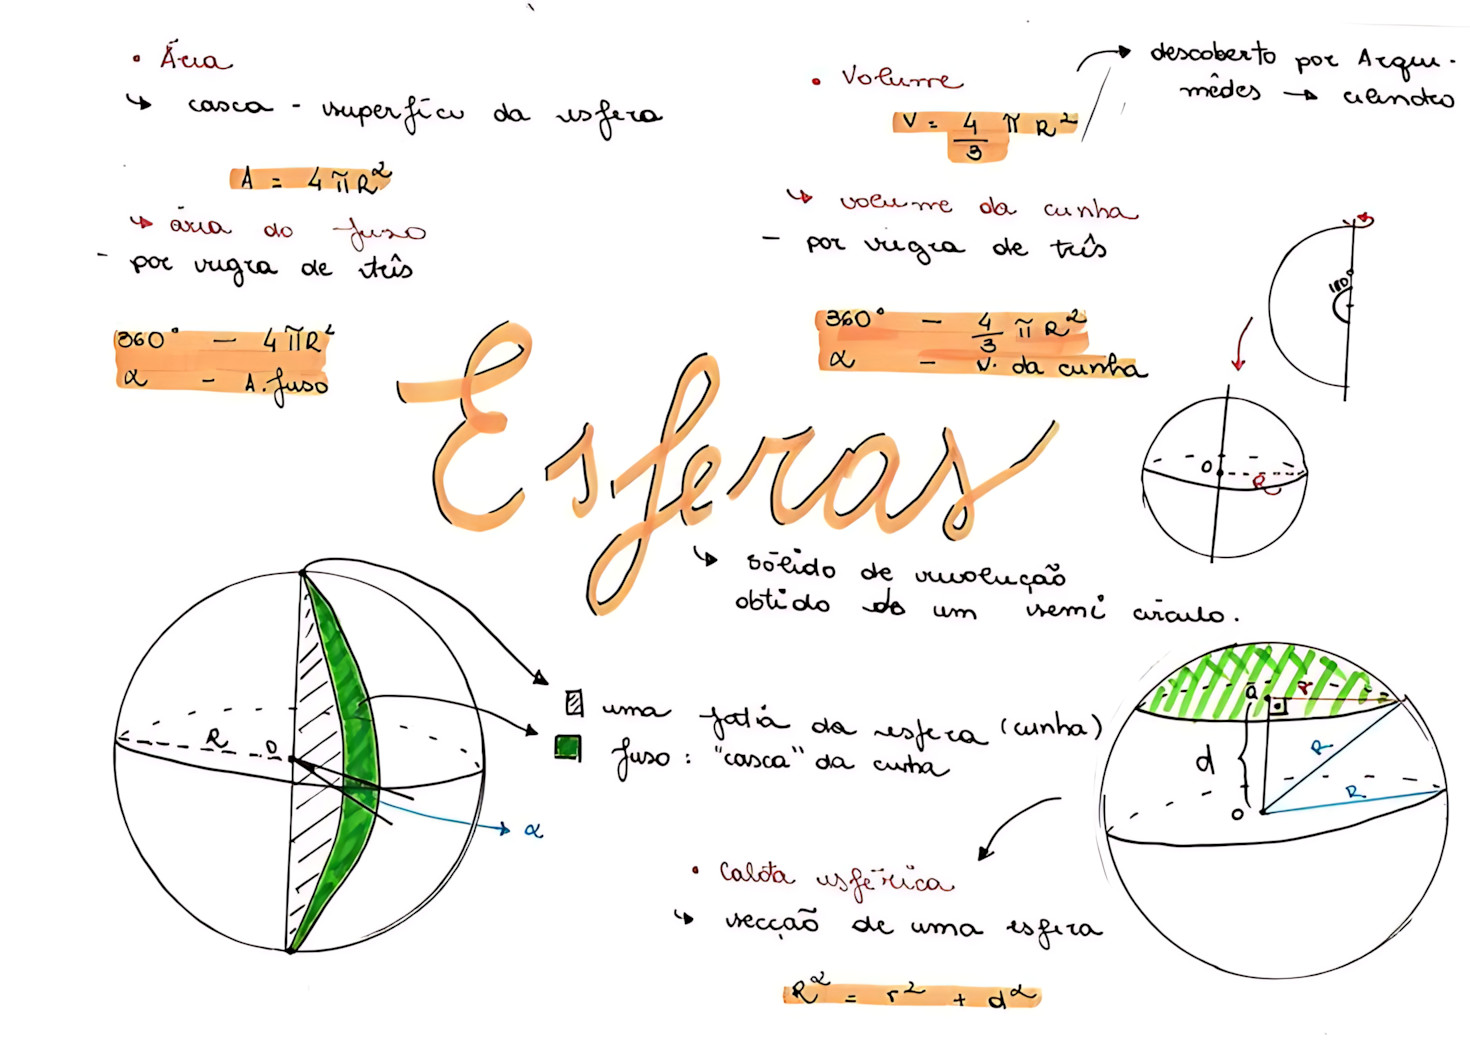 • Área
↳ casca - superfície da esfera
A = 4πR²
↳ área do fuso
- por regra de três
360° — 4πR²
α - A. fuso
• Volume
V = 4/3 π R²
descoberto por Arqui-
mêdes → cilindro
↳ volume da cunha
- por regra de três
360° — 4/3 π R²
α — V. da cunha
180°
O
R
Esferas
↳ sólido de revolução
obtido do um semi círculo.
R
O
α
uma fatia da esfera (cunha)
fuso: "casca" da cunha
• Calota esférica
↳ secção de uma esfera
R² = r² + d²
r
d
R
R
O